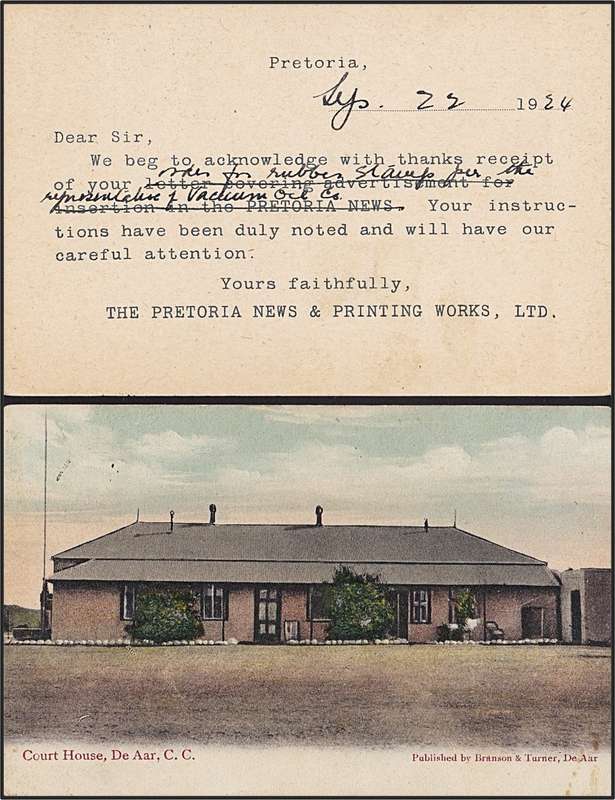 Pretoria,
Sep. 22 1924
Dear Sir,
We beg to acknowledge with thanks receipt
order for rubber stamp per the
of your letter covering advertisment for
representative of Vacuum Oil Co.
insertion in the PRETORIA NEWS. Your instruc-
tions have been duly noted and will have our
careful attention.
Yours faithfully,
THE PRETORIA NEWS & PRINTING WORKS, LTD.
Court House, De Aar, C. C.
Published by Branson & Turner, De Aar